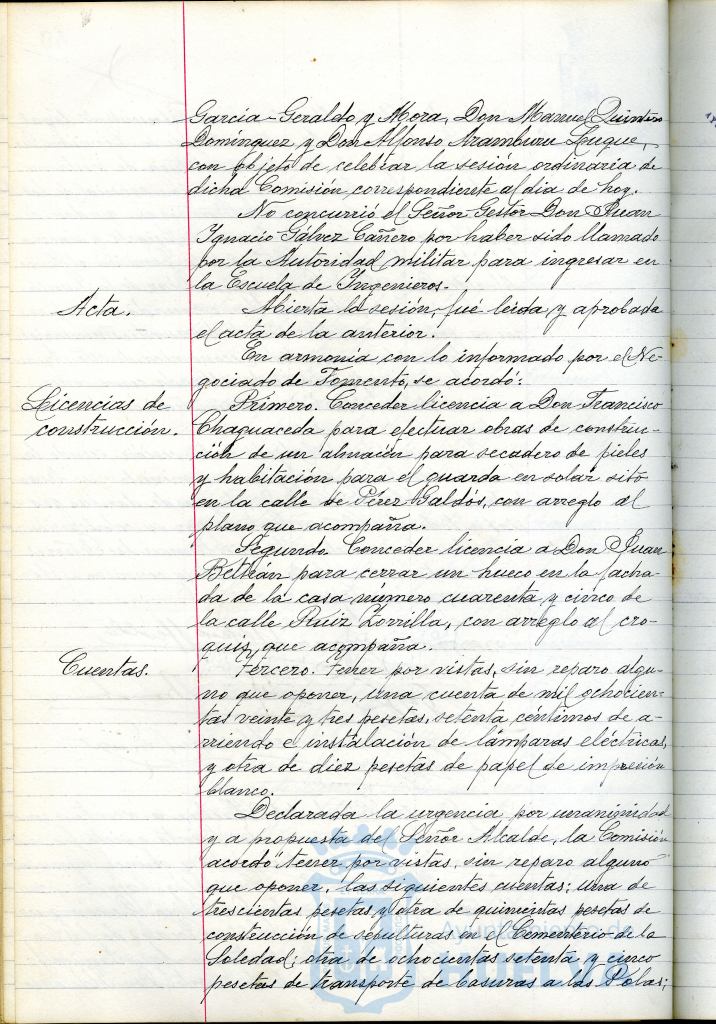 García-Geraldo y Mora, Don Manuel Quintero
Domínguez y Don Alfonso Aramburu Luque,
con objeto de celebrar la sesión ordinaria de
dicha Comisión correspondiente al día de hoy.
No concurrió el Señor Gestor Don Juan
Ignacio Gálvez Cañero por haber sido llamado
por la Autoridad militar para ingresar en
la Escuela de Ingenieros.
Acta.
Abierta la sesión, fué leída y aprobada
el acta de la anterior.
En armonía con lo informado por el Ne-
gociado de Fomento, se acordó:
Licencias de
construcción.
Primero. Conceder licencia a Don Francisco
Chaguaceda para efectuar obras de construc-
ción de un almacén para secadero de pieles
y habitación para el guarda en solar sito
en la calle de Pérez Galdós, con arreglo al
plano que acompaña.
Segundo. Conceder licencia a Don Juan
Beltrán para cerrar un hueco en la facha-
da de la casa número cuarenta y cinco de
la calle Ruiz Zorrilla, con arreglo al cro-
quis, que acompaña.
Cuentas.
Tercero. Tener por vistas, sin reparo algu-
no que oponer, una cuenta de mil ochocien-
tas veinte y tres pesetas, setenta céntimos de a-
rriendo e instalación de lámparas eléctricas,
y otra de diez pesetas de papel de impresión
blanco.
Declarada la urgencia por unanimidad
y a propuesta del Señor Alcalde, la Comisión
acordó tener por vistas, sin reparo alguno
que oponer, las siguientes cuentas: una de
trescientas pesetas y otra de quinientas pesetas de
construcción de sepulturas en el Cementerio de la
Soledad; otra de ochocientas setenta y cinco
pesetas de transporte de basuras a las Polas;
Ayuntamiento de
HUELVA